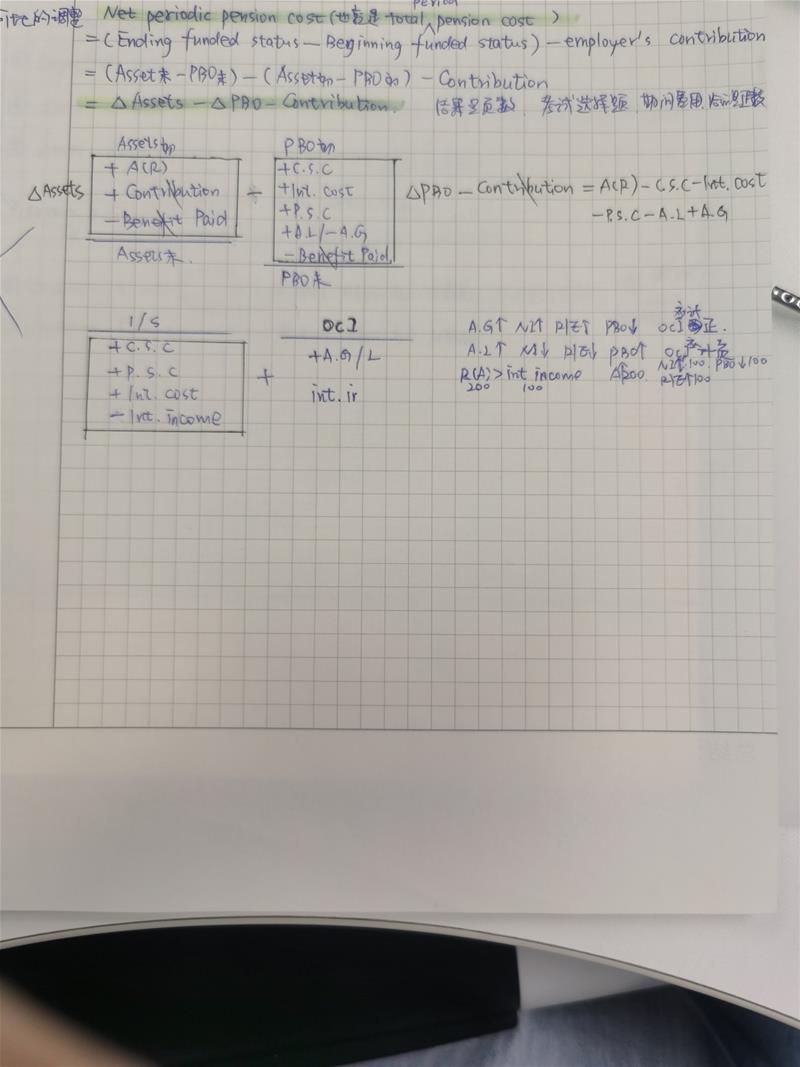 period
的调整 Net periodic pension cost (也就是 total pension cost )
= (Ending funded status — Beginning funded status) — employer's contribution
= (Asset末 - PBO末) - (Asset初 - PBO初) - Contribution
= △Assets - △PBO - Contribution. 结果是负数, 考试选择题, 期间费用, 正数
Assets初
+ A(R)
+ Contribution
- Benefit Paid
Assets末
△Assets
-
PBO初
+ C.S.C
+ Int. cost
+ P.S.C
+ A.L/-A.G
- Benefit Paid
PBO末
△PBO - Contribution = A(R) - C.S.C - Int. cost
- P.S.C - A.L + A.G
I/S
+ C.S.C
+ P.S.C
+ Int. cost
- Int. income
+
OCI
+ A.G/L
int. ir
A.G↑ NI↑ R/E↑ PBO↓ OCI 正.
A.L↑ NI↓ R/E↓ PBO↑ OCI 负
R(A) > int income A↑200. NI↑100. PBO↓100
200 100 R/E↑100